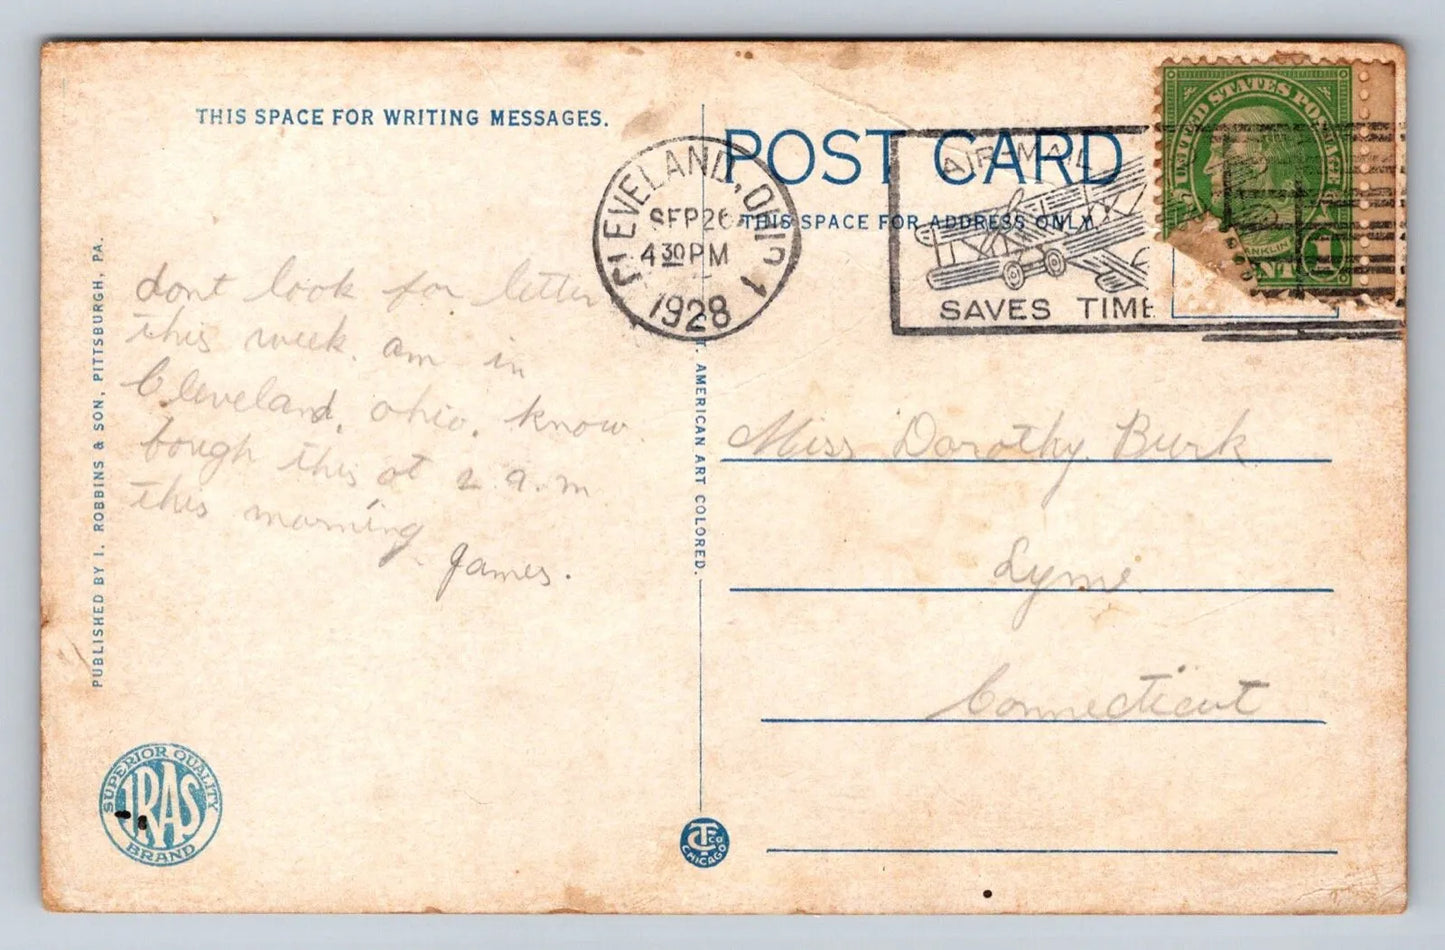 THIS SPACE FOR WRITING MESSAGES.
POST CARD
THIS SPACE FOR ADDRESS ONLY.
CLEVELAND, OHIO 1
SEP 26
4 30 PM
1928
AIR-MAIL
SAVES TIME
UNITED STATES POSTAGE
ANKLIN
1
NT
dont look for letter
this week. am in
Cleveland, Ohio. know
bough this at 2 a.m
this morning
James.
Miss Dorothy Burk
Lyme
Connecticut
PUBLISHED BY I. ROBBINS & SON, PITTSBURGH, PA.
T. AMERICAN ART COLORED.
SUPERIOR QUALITY
IRAS
BRAND
CT CO
CHICAGO